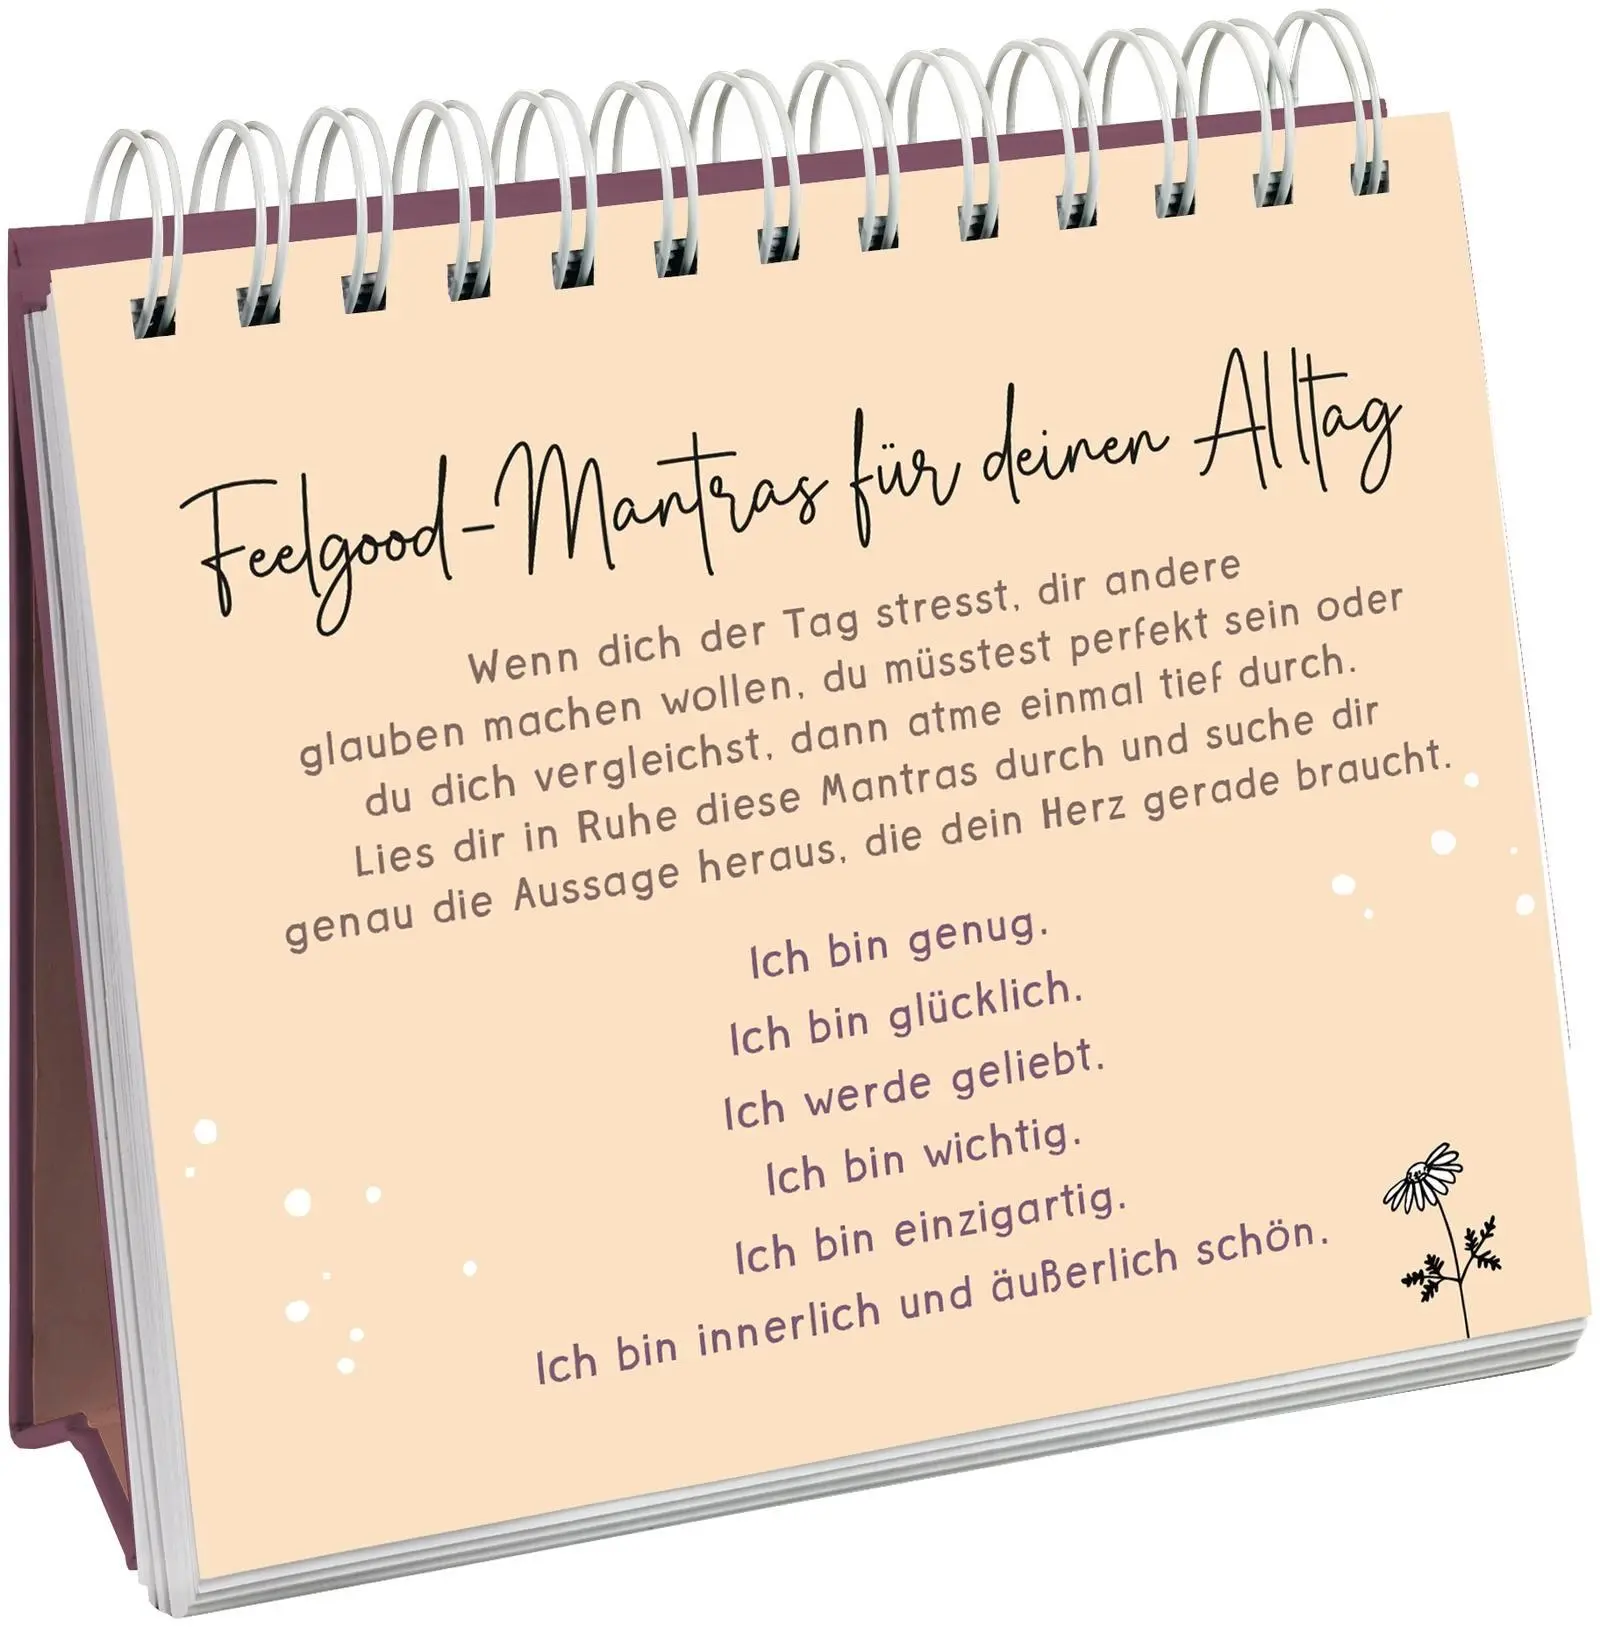 Feelgood-Mantras für deinen Alltag
Wenn dich der Tag stresst, dir andere
glauben machen wollen, du müsstest perfekt sein oder
du dich vergleichst, dann atme einmal tief durch.
Lies dir in Ruhe diese Mantras durch und suche dir
genau die Aussage heraus, die dein Herz gerade braucht.
Ich bin genug.
Ich bin glücklich.
Ich werde geliebt.
Ich bin wichtig.
Ich bin einzigartig.
Ich bin innerlich und äußerlich schön.